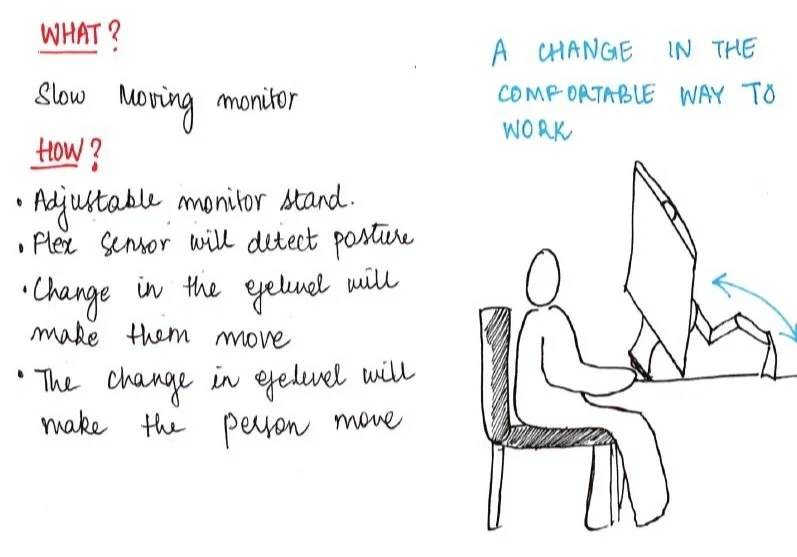 WHAT?
Slow Moving monitor
HOW?
• Adjustable monitor stand.
• Flex sensor will detect posture
• Change in the eyelevel will
make them move
• The change in eyelevel will
make the person move
A CHANGE IN THE
COMFORTABLE WAY TO
WORK